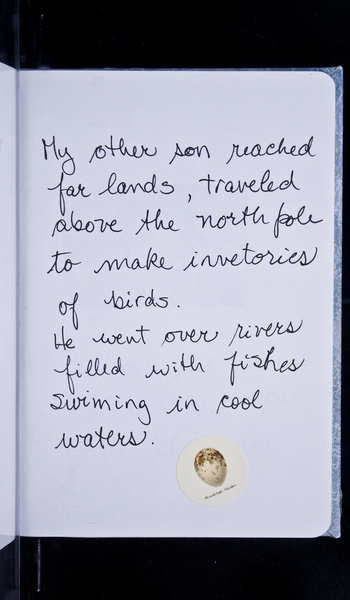 My other son reached
far lands, traveled
above the north pole
to make invetories
of birds.
He went over rivers
filled with fishes
swiming in cool
waters.